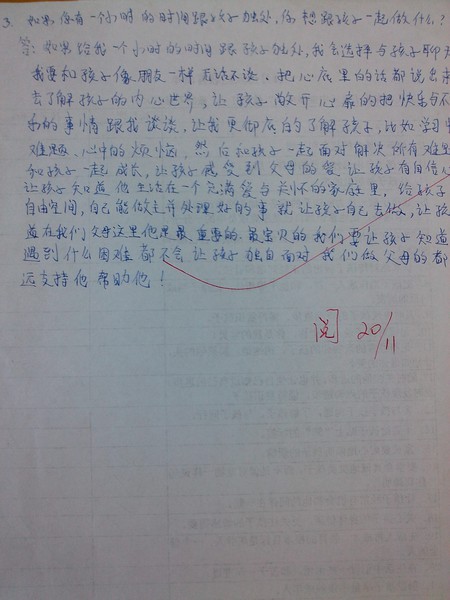 3. 如果你有一个小时的时间跟孩子独处,你想跟孩子一起做什么?
答:如果给我一个小时的时间跟孩子独处,我会选择与孩子聊天
我要和孩子像朋友一样无话不谈.把心底里的话都说出来
去了解孩子的内心世界,让孩子敞开心扉的把快乐与不
的事情跟我谈谈,让我更彻底的了解孩子,比如学习中
难题、心中的烦恼,然后和孩子一起面对解决所有难题
和孩子一起成长,让孩子感受到父母的爱让孩子有自信
让孩子知道他生活在一个充满爱与关怀的家庭里,给孩子
自由空间,自己能做主并处理好的事就让孩子自己去做,让孩
道在我们父母这里他是最重要的.最宝贝的我们要让孩子知道
遇到什么困难都不会让孩子独自面对我们做父母的都
远支持他帮助他!
阅 20/11